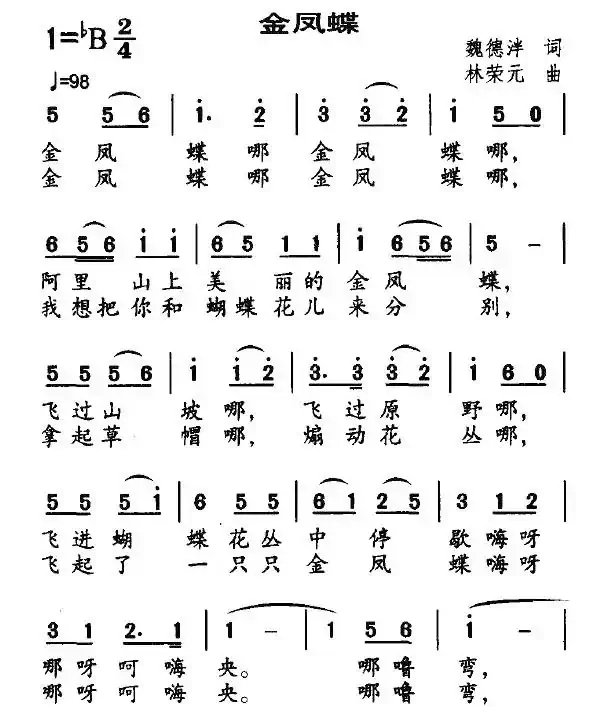 金凤蝶
1=♭B 2/4
魏德泮 词
♩=98
林荣元 曲
5 5 6 | 1̇. 2̇ | 3̇ 3̇ 2̇ | 1̇ 5 0 |
金 凤 蝶 哪 金 凤 蝶 哪,
金 凤 蝶 哪 金 凤 蝶 哪,
6 5 6 1̇ 1̇ | 6 5 1 1 | 1̇ 6 5 6 | 5 – |
阿 里 山 上 美 丽 的 金 凤 蝶,
我 想 把 你 和 蝴 蝶 花 儿 来 分 别,
5 5 5 6 | 1̇ 1̇ 2̇ | 3̇. 3̇ 3̇ 2̇ | 1̇ 6 0 |
飞 过 山 坡 哪, 飞 过 原 野 哪,
拿 起 草 帽 哪, 煽 动 花 丛 哪,
5 5 5 1̇ | 6 5 5 | 6 1 2 5 | 3 1 2 |
飞 进 蝴 蝶 花 丛 中 停 歇 嗨 呀
飞 起 了 一 只 只 金 凤 蝶 嗨 呀
3 1 2. 1 | 1 – | 1 5 6 | 1̇ – |
哪 呀 呵 嗨 央。 哪 噜 弯,
哪 呀 呵 嗨 央。 哪 噜 弯,